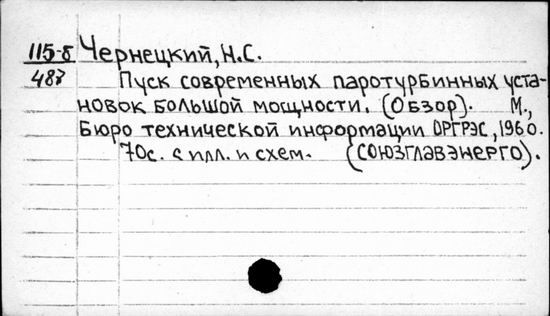 115-8 Чернецкий, Н.С.
487 Пуск современных паротурбинных уста-
новок большой мощности. (Обзор). М.,
Бюро технической информации ОРГРЭС, 1960.
70с. с илл. и схем. (СОЮЗГЛАВЭНЕРГО).